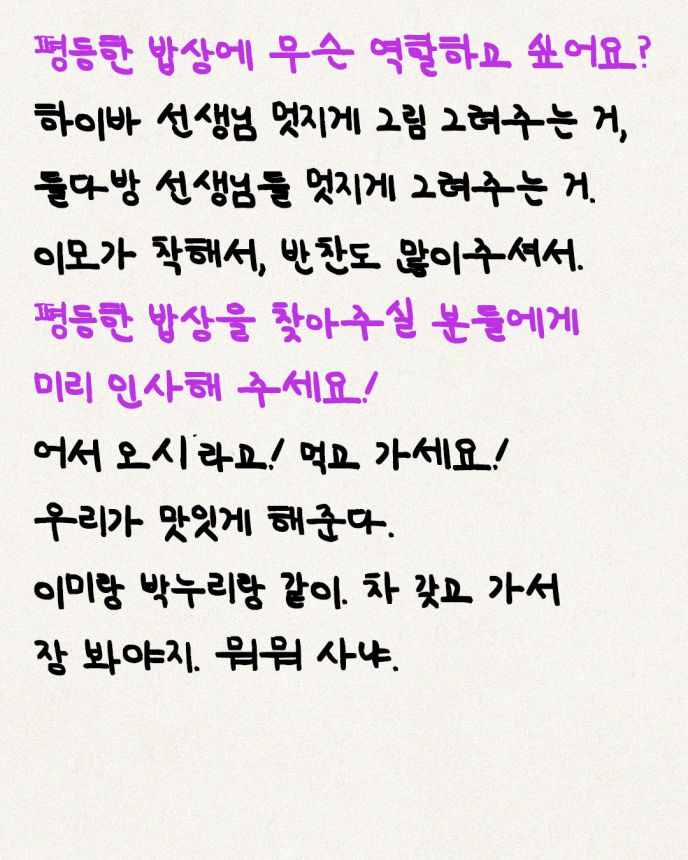 평등한 밥상에 무슨 역할하고 싶어요?
하이바 선생님 멋지게 그림 그려주는 거,
들다방 선생님들 멋지게 그려주는 거.
이모가 착해서, 반찬도 많이주셔서.
평등한 밥상을 찾아주실 분들에게
미리 인사해 주세요!
어서 오시라고! 먹고 가세요!
우리가 맛잇게 해준다.
이미랑 박누리랑 같이. 차 갖고 가서
장 봐야지. 뭐뭐 사냐.